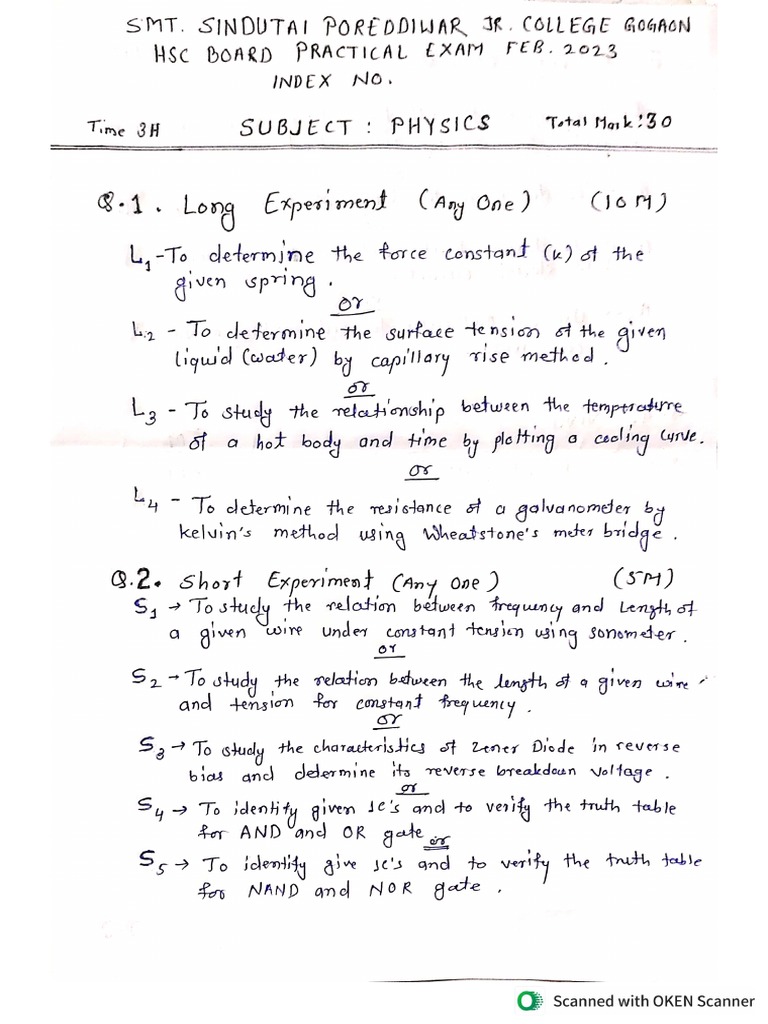 SMT. SINDUTAI POREDDIWAR JR. COLLEGE GOGAON
HSC BOARD PRACTICAL EXAM FEB. 2023
INDEX NO.
Time 3H SUBJECT : PHYSICS Total Mark : 30
Q.1. Long Experiment (Any One) (10 M)
L1 - To determine the force constant (k) of the
given spring.
or
L2 - To determine the surface tension of the given
liquid (water) by capillary rise method.
or
L3 - To study the relationship between the temperature
of a hot body and time by plotting a cooling curve.
or
L4 - To determine the resistance of a galvanometer by
kelvin's method using Wheatstone's meter bridge.
Q.2. Short Experiment (Any One) (5M)
S1 → To study the relation between frequency and Length of
a given wire under constant tension using sonometer.
or
S2 → To study the relation between the length of a given wire
and tension for constant frequency.
or
S3 → To study the characteristics of Zener Diode in reverse
bias and determine its reverse breakdown voltage.
or
S4 → To identify given IC's and to verify the truth table
for AND and OR gate
or
S5 → To identify give IC's and to verify the truth table
for NAND and NOR gate.
Scanned with OKEN Scanner